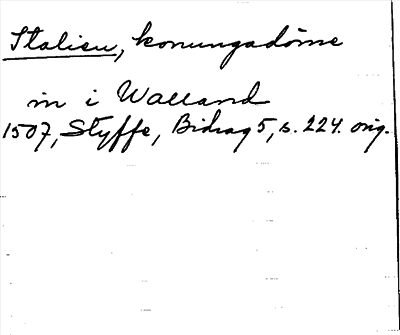 Italien, konungadöme
in i Walland
1507, Styffe, Bidrag 5, s. 224. orig.